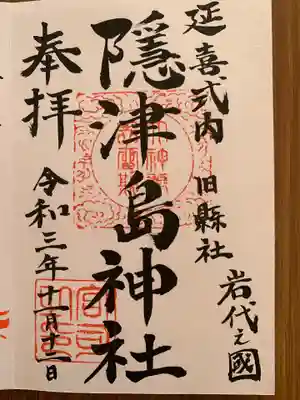 延喜式内 旧縣社 岩代之國
隠津島神社
奉拝 令和三年十一月十二日